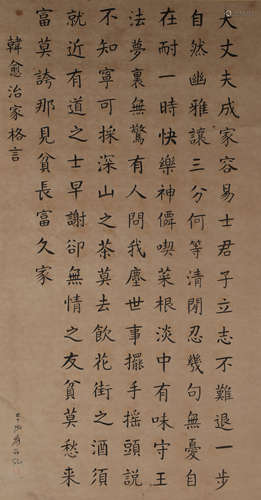 大丈夫成家容易士君子立志不難退一步
自然幽雅讓三分何等清閒忍幾句無憂自
在耐一時快樂神僊喫菜根淡中有味守王
法夢裏無驚有人問我塵世事擺手搖頭說
不知寧可採深山之茶莫去飲花街之酒須
就近有道之士早謝卻無情之友貧莫愁來
富莫誇那見貧長富久家
韓愈治家格言